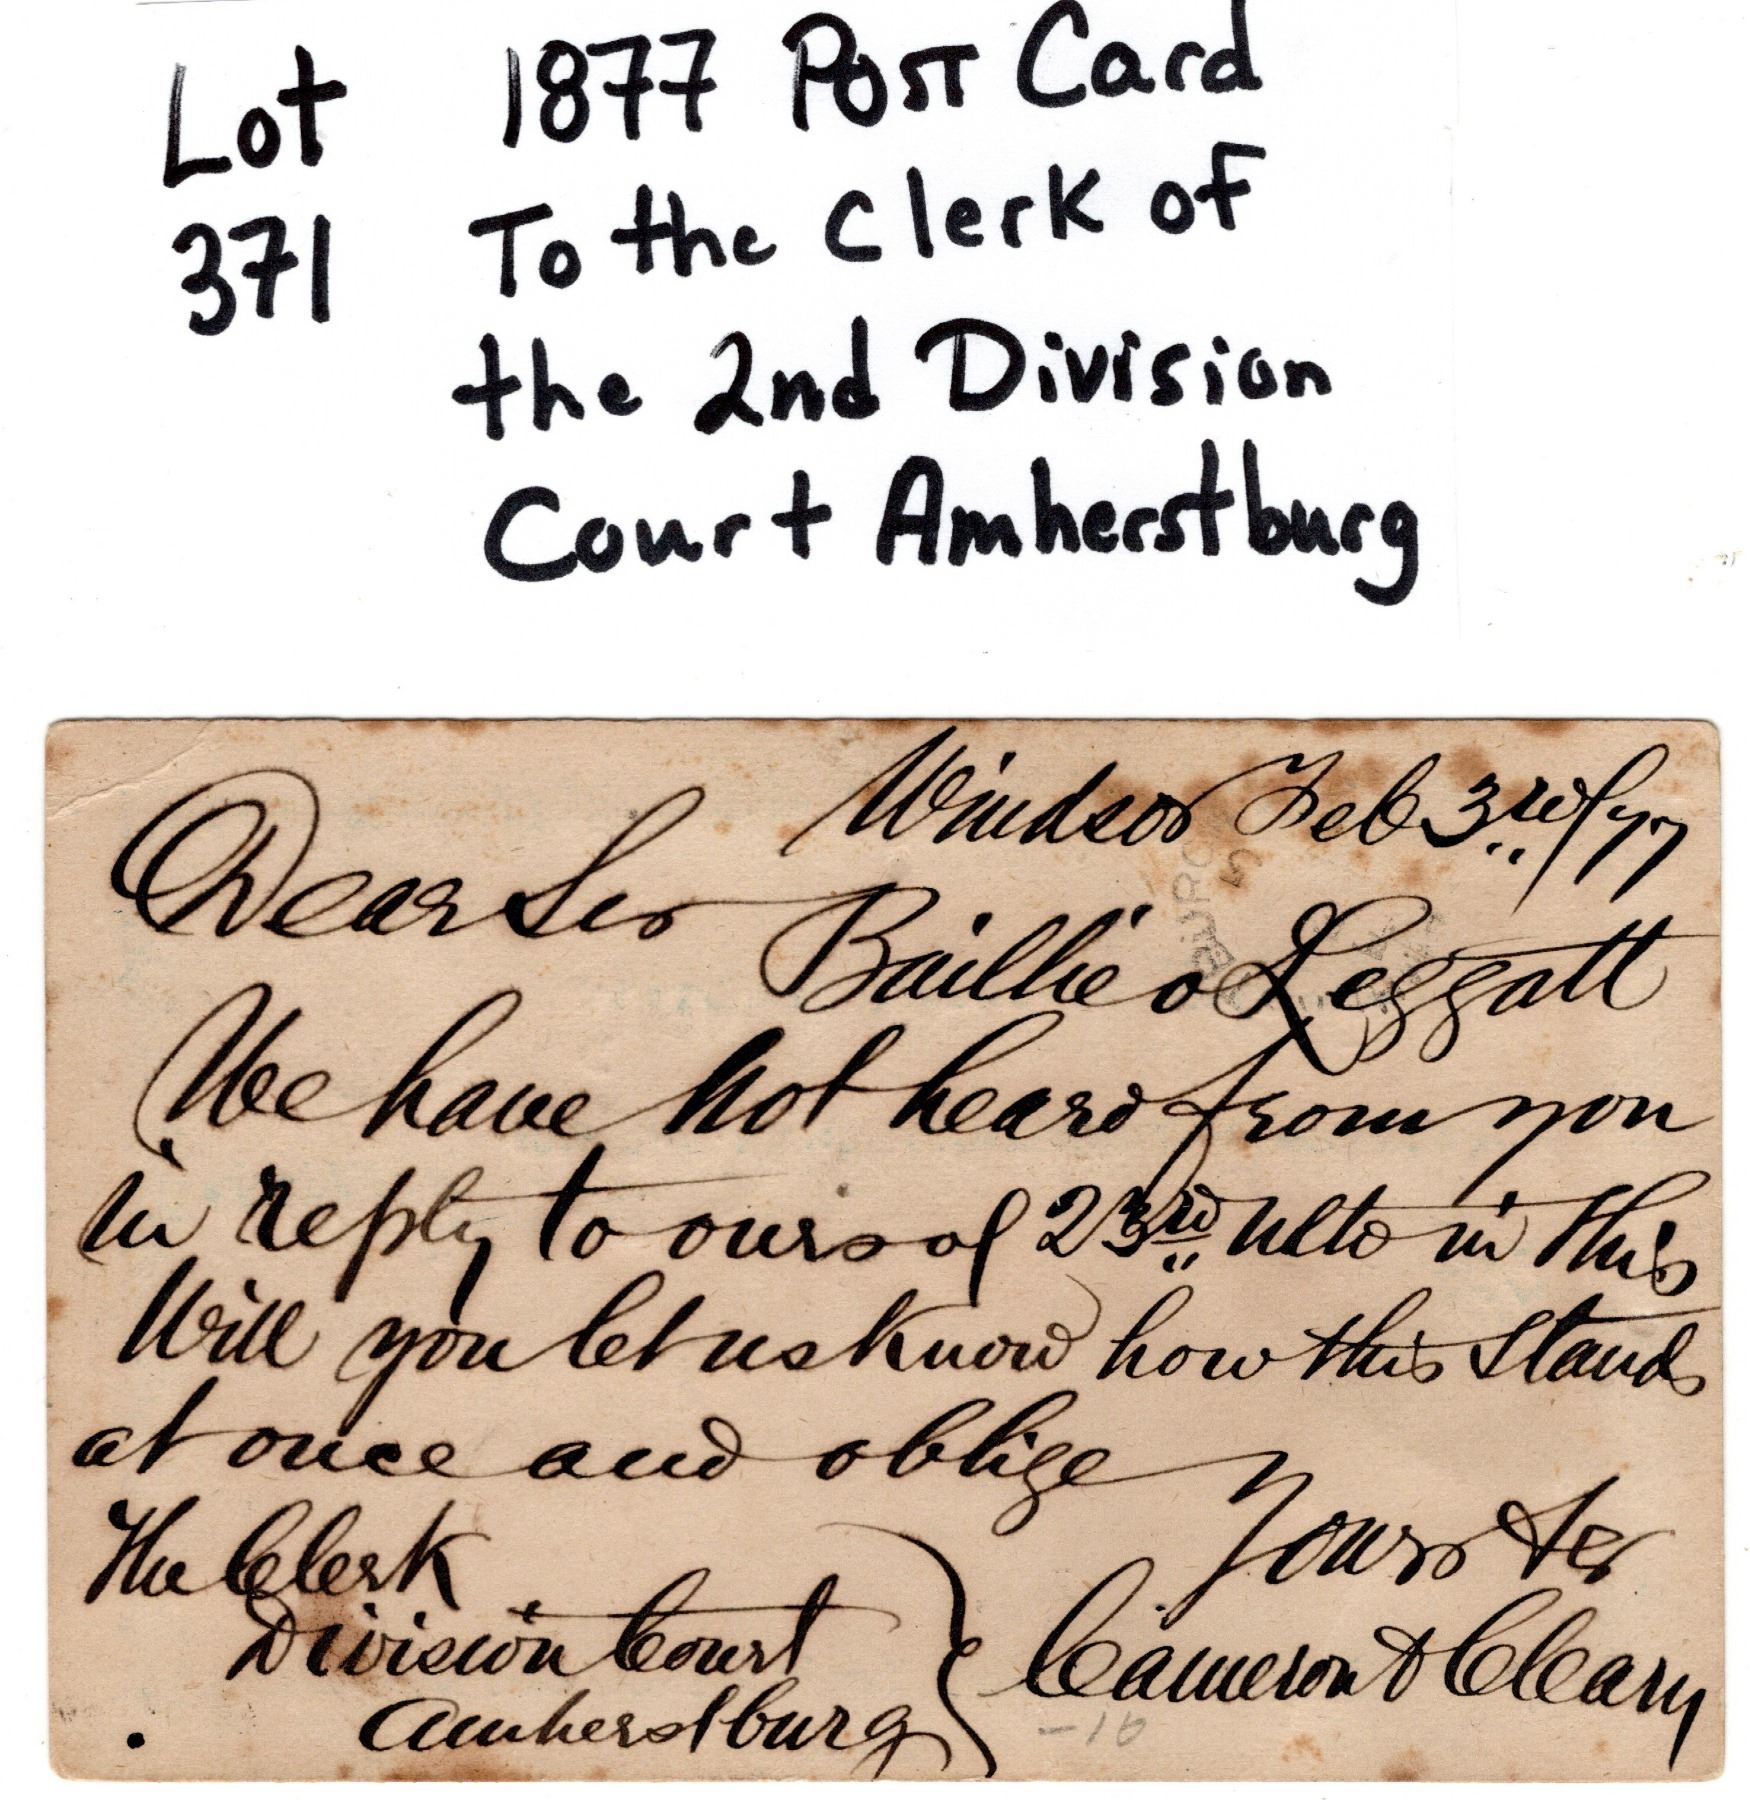 Lot 1877 Post Card
371 To the Clerk of
the 2nd Division
Court Amherstburg
Windsor Feb 3rd/77
Dear Sir
Baillie v Leggatt
We have not heard from you
in reply to ours of 23rd ulto in this
Will you let us know how this stands
at once and oblige
Yours &c
The Clerk
Division Court
Amherstburg
Cameron & Cleary
-10